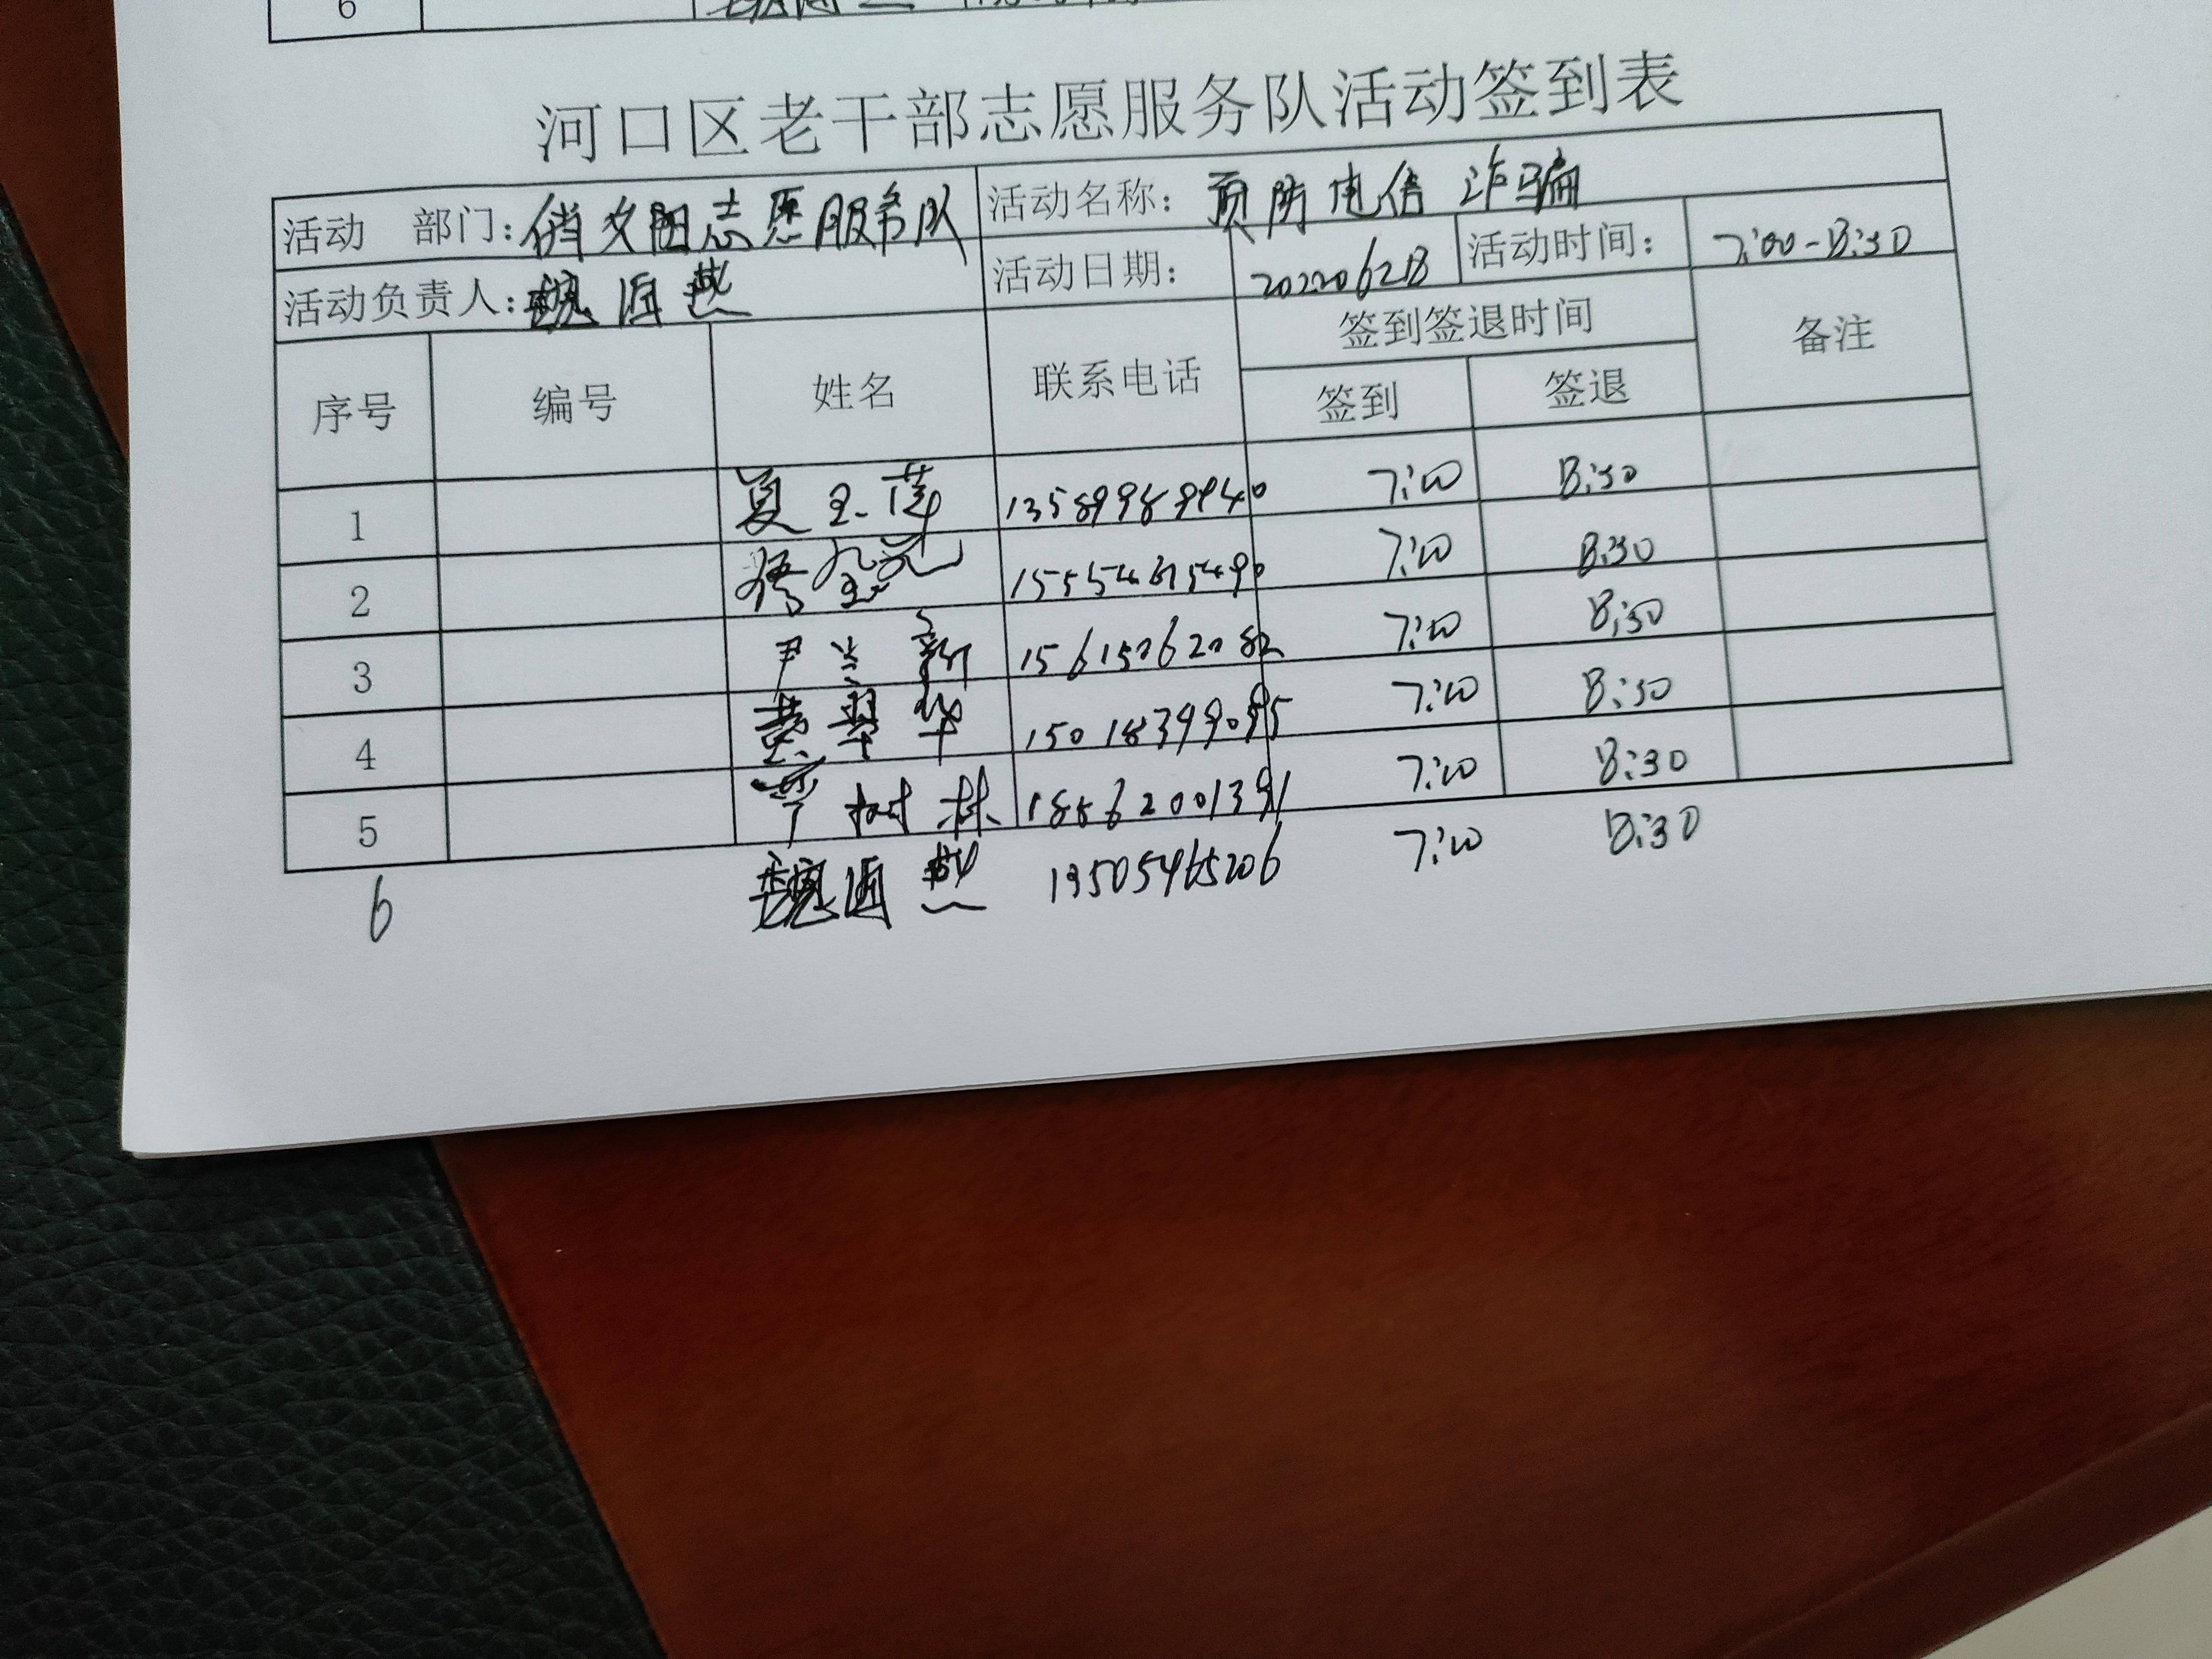 6
河口区老干部志愿服务队活动签到表
活动 部门:俏夕阳志愿服务队 活动名称: 预防电信诈骗
活动负责人: 活动日期: 20220628 活动时间: 7:00-8:30
序号 编号 姓名 联系电话 签到签退时间 备注
签到 签退
1 夏玉莲 13589989940 7:00 8:30
2 7:00 8:30
3 尹兰新 15615062082 7:00 8:30
4 黄翠华 7:00 8:30
5 树林 18562001391 7:00 8:30
6 7:00 8:30